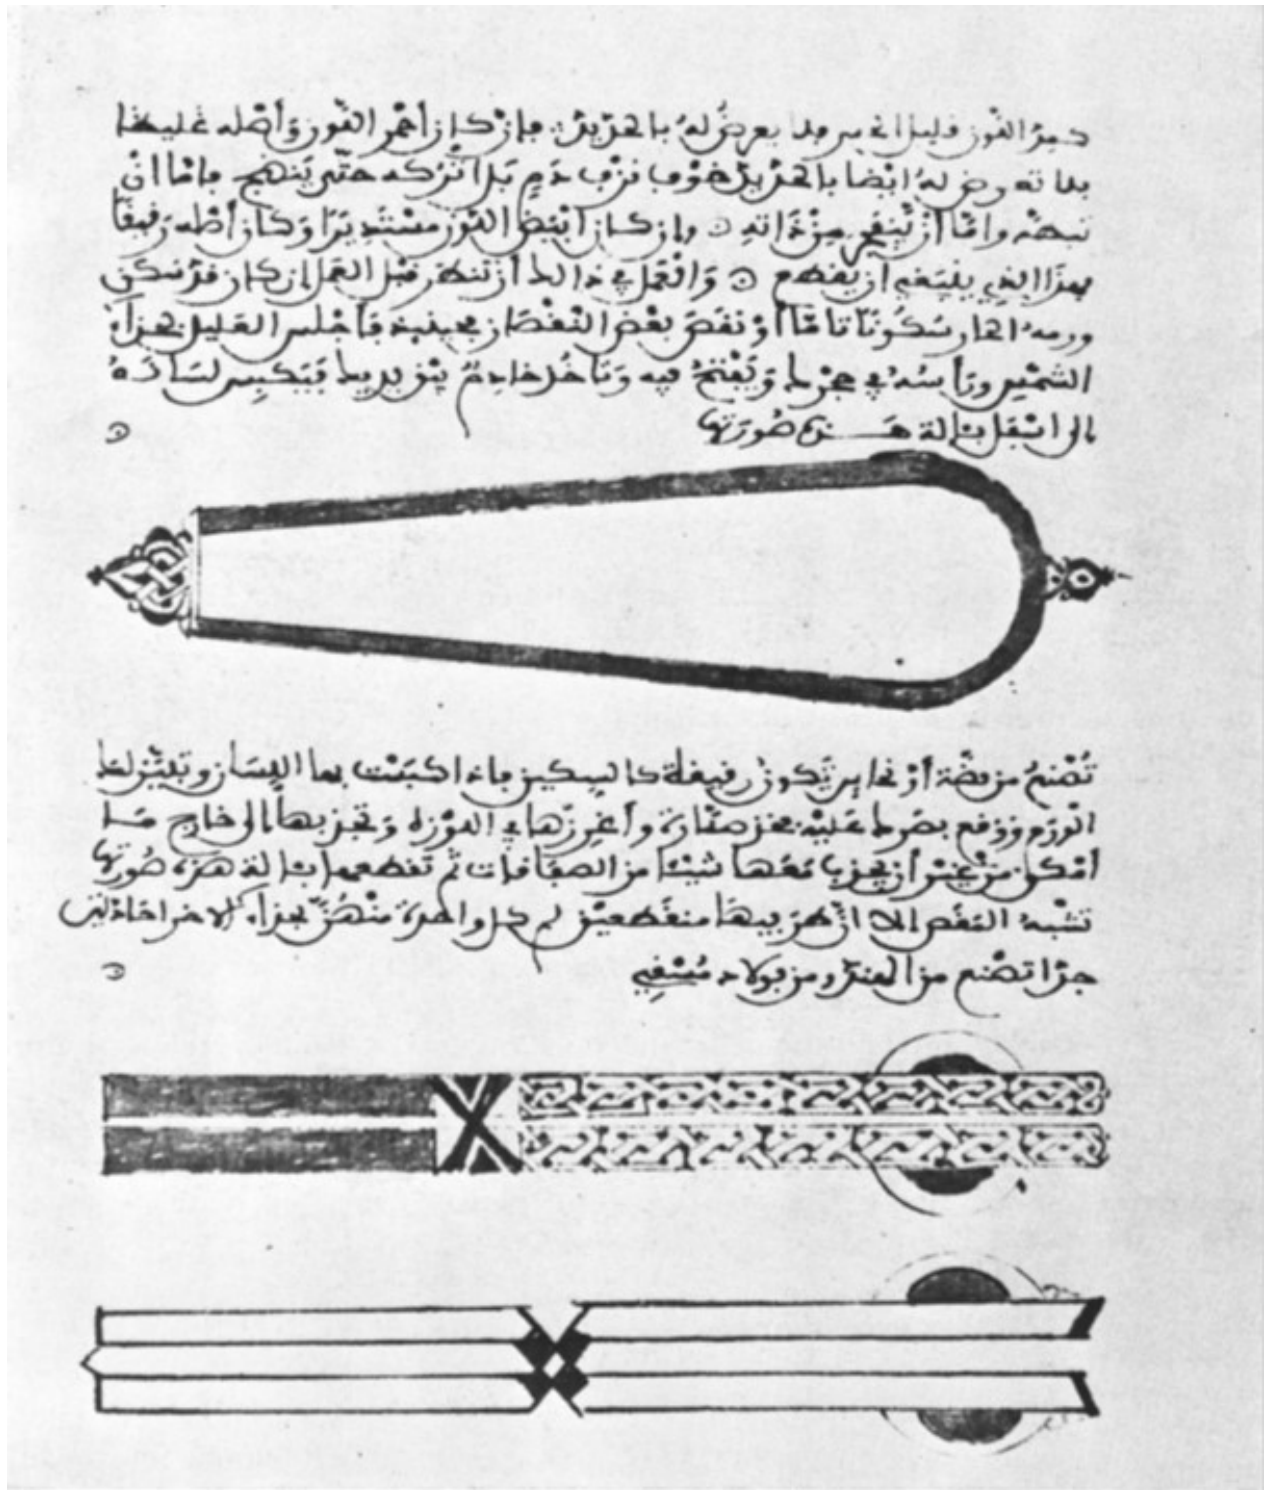 كمد اللون قليل الحس فلا يعرض له بالحديد فإن كان أحمر اللون وأصله غليظا
فلا تعرض له أيضا بالحديد خوف نزف دم بل اتركه حتى ينضج فإما أن
تبطه وإما أن ينفجر من ذاته وإن كان أبيض اللون مستديرا وكان أصله رقيقا
فهذا الذي ينبغي أن يقطع والعمل في ذالك أن تنظر قبل العمل إن كان قد سكن
ورمه الحار سكونا تاما أو نقص بعض النقصان فحينئذ فأجلس العليل بحذاء
الشمس ورأسه في حجرك وتفتح فيه وتأخذ خادم بين يديك فيكبس لسانه
إلى اسفل بئالة هذه صورتها
تصنع من فضة أو نحاس تكون رقيقة كالسكين فإذا كبست بها اللسان وتبين لك
الورم ووقع بصرك عليه فخذ صنارة وأغرزها في اللوزة وتجذبها إلى خارج ما
أمكن من غير أن تجذب معها شيئا من الصفاقات ثم تقطعها بئالة هذه صورتها
تشبه المقص إلا أن طرفيها منعطفين فم كل واحدة منهن بحذاء الاخر حادين
جدا تصنع من الهند و من فولاد مسقي